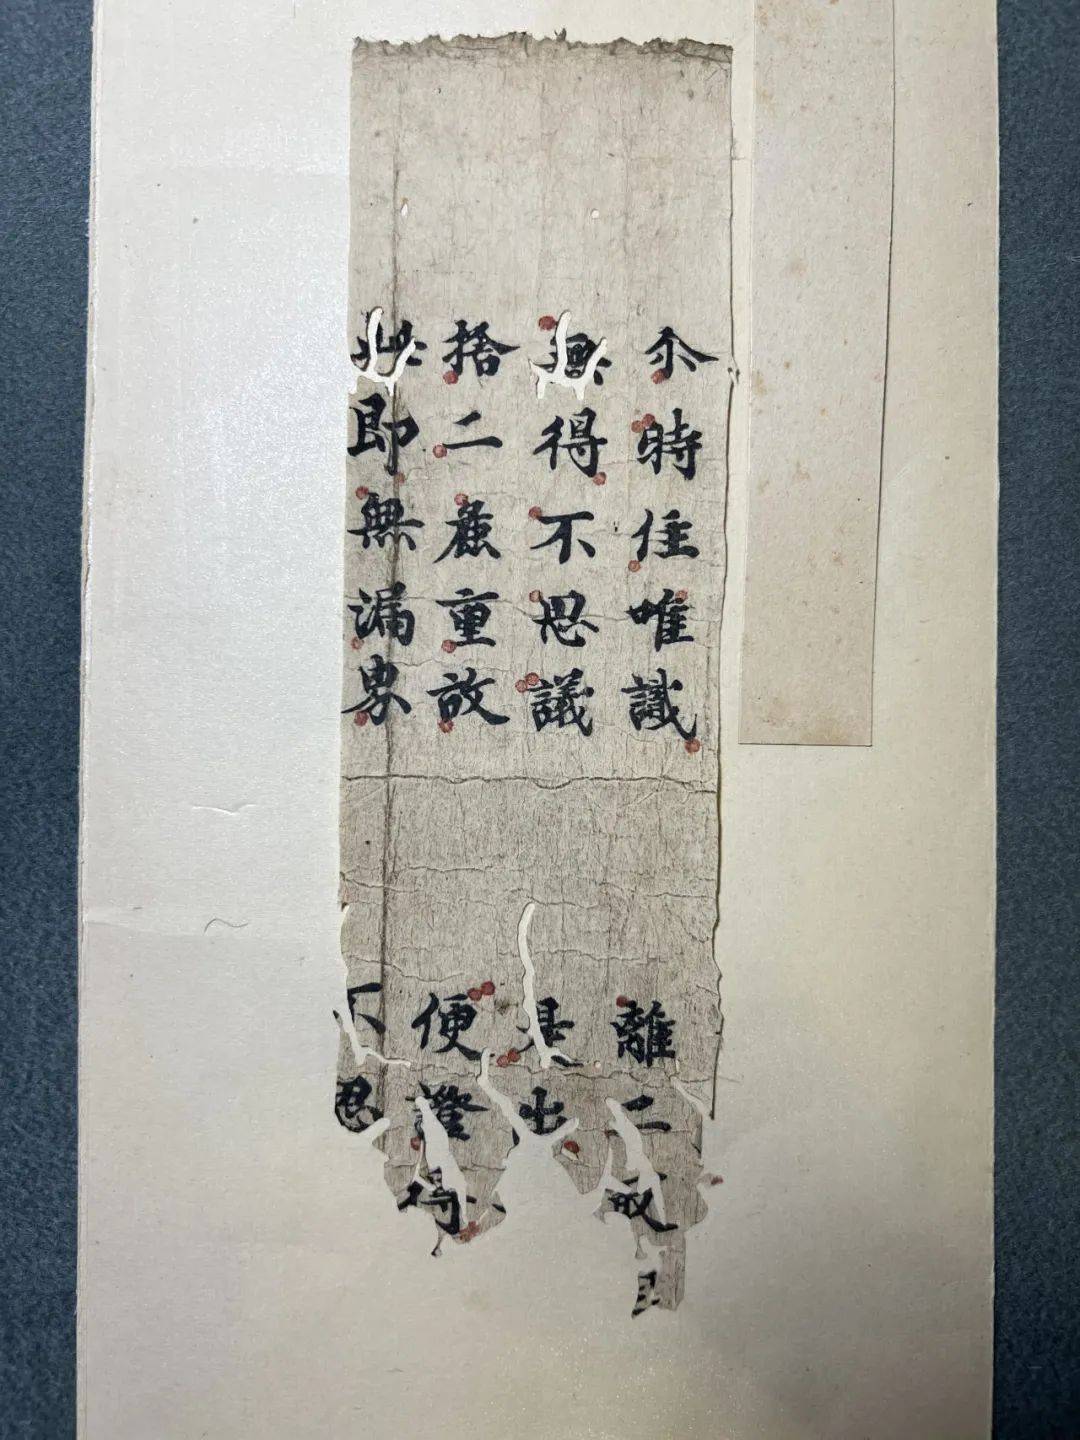 尒時住唯識 離二取
無得不思議 是出
捨二麁重故 便證得
此即無漏界 不思